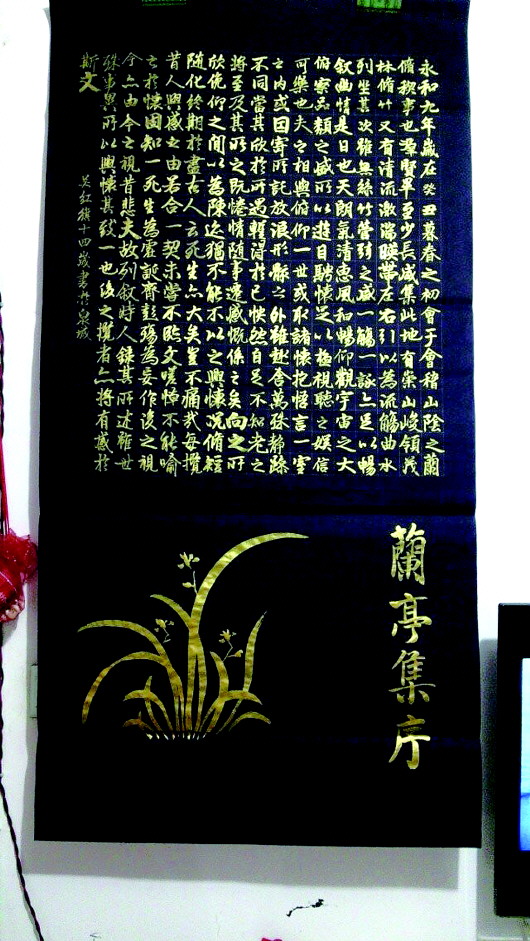 永和九年歲在癸丑暮春之初會于會稽山陰之蘭
脩稧事也羣賢畢至少長咸集此地有崇山峻領茂
林脩竹又有清流激湍暎帶左右引以為流觴曲水
列坐其次雖無絲竹管弦之盛一觴一詠亦足以暢
叙幽情是日也天朗氣清惠風和暢仰觀宇宙之大
俯察品類之盛所以遊目騁懷足以極視聽之娛信
可樂也夫之相與俯仰一世或取諸懷抱悟言一室
之內或因寄所託放浪形骸之外雖趣舍萬殊靜躁
不同當其欣於所遇暫得於己快然自足不知老之
將至及其所之既惓情隨事遷感慨係之矣向之所
欣俛仰之間以為陳迹猶不能不以之興懷況脩短
隨化終期於盡古人云死生亦大矣豈不痛哉每攬
昔人興感之由若合一契未嘗不臨文嗟悼不能喻
之於懷固知一死生為虛誕齊彭殤為妄作後之視
今亦由今之視昔悲夫故列叙時人錄其所述雖世
殊事異所以興懷其致一也後之攬者亦將有感於
斯文
吴紅十四歲書於泉城
蘭亭集序